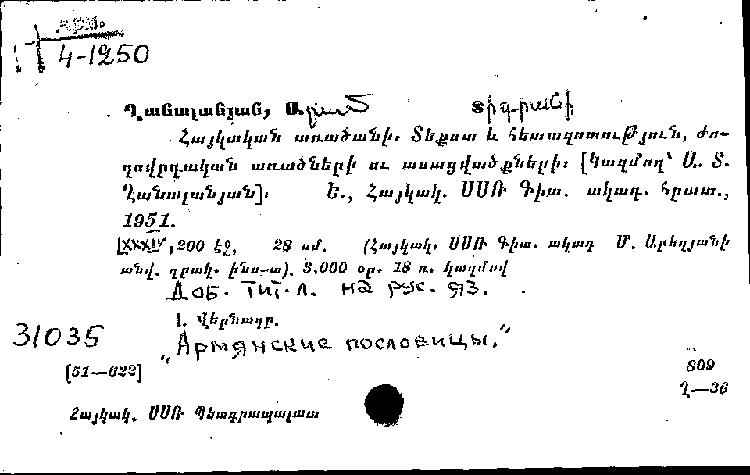 АРМ.
4-1250
Ղանալանյան, Արամ Տիգրանի
Հայկական առածանի. Տեքստ և հետազոտություն, ժո-
ղովրդական առածների ու ասացվածքների: [Կազմող՝ Ա. Տ.
Ղանալանյան]: Ե., Հայկակ. ՍՍՌ Գիտ. ակադ. հրատ.,
1951.
LXXXIV, 200 էջ, 28 սմ. (Հայկակ. ՍՍՌ Գիտ. ակադ Մ. Աբեղյանի
անվ. գրակ. ինստ-տ). 3.000 օր. 18 ռ. կազմով
Доб. тит. л. на рус. яз.
1. Վերնագր.
31035
„Армянские пословицы."
[51—622]
809
Ղ—36
Հայկակ. ՍՍՌ Պետգրապալատ